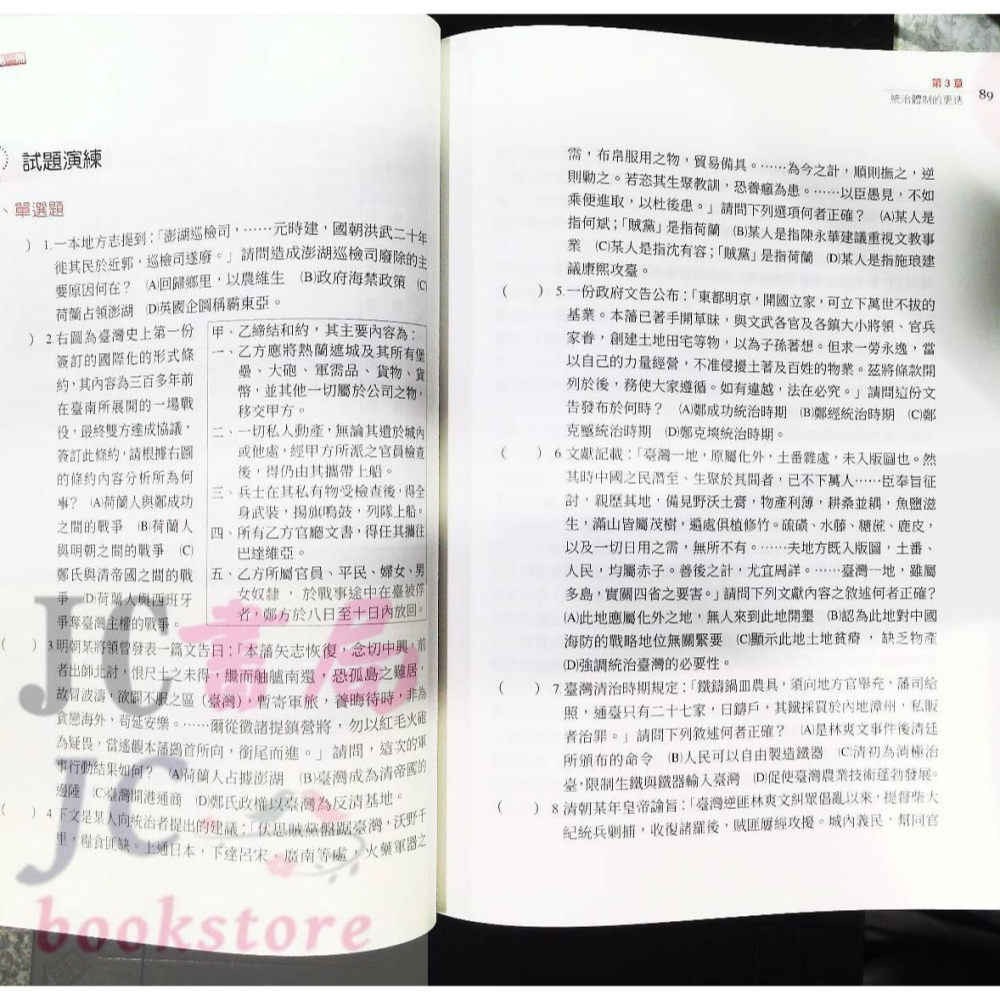 試題演練
、單選題
) 1.一本地方志提到：「澎湖巡檢司，……元時建，國朝洪武二十年
徙其民於近郭，巡檢司遂廢。」請問造成澎湖巡檢司廢除的主
要原因何在？ (A)回歸鄉里，以農維生 (B)政府海禁政策 (C)
荷蘭占領澎湖 (D)英國企圖稱霸東亞。
) 2.右圖為臺灣史上第一份
簽訂的國際化的形式條
約，其內容為三百多年前
在臺南所展開的一場戰
役，最終雙方達成協議，
簽訂此條約，請根據右圖
的條約內容分析所為何
事？ (A)荷蘭人與鄭成功
之間的戰爭 (B)荷蘭人
與明朝之間的戰爭 (C)
鄭氏與清帝國之間的戰
爭 (D)荷蘭人與西班牙
爭奪臺灣主權的戰爭。
甲、乙締結和約，其主要內容為：
一、乙方應將熱蘭遮城及其所有堡
壘、大砲、軍需品、貨物、貨
幣，並其他一切屬於公司之物，
移交甲方。
二、一切私人動產，無論其遺於城內
或他處，經甲方所派之官員檢查
後，得仍由其攜帶上船。
三、兵士在其私有物受檢查後，得全
身武裝，揚旗鳴鼓，列隊上船。
四、所有乙方官廳文書，得任其攜往
巴達維亞。
五、乙方所屬官員、平民、婦女、男
女奴隸，於戰事途中在臺被俘
者，鄭方於八日至十日內放回。
( ) 3.明朝某將領曾發表一篇文告曰：「本藩矢志恢復，念切中興，前
者出師北討，恨尺土之未得，繼而舳艫南還，恐孤島之難居，
故冒波濤，欲闢不服之區（臺灣），暫寄軍旅，養晦待時，非為
貪戀海外，苟延安樂。……爾從徵諸提鎮營將，勿以紅毛火砲
為疑畏，當遙觀本藩鷁首所向，銜尾而進。」請問，這次的軍
事行動結果如何？ (A)荷蘭人占據澎湖 (B)臺灣成為清帝國的
邊陲 (C)臺灣開港通商 (D)鄭氏政權以臺灣為反清基地。
( ) 4.下文是某人向統治者提出的建議：「伏思賊黨盤踞臺灣，沃野千
里，糧食匪缺。上通日本，下達呂宋、廣南等處，火藥軍器之
第3章
統治體制的更迭 89
需，布帛服用之物，貿易備具。……為今之計，順則撫之，逆
則勦之。若恣其生聚教訓，恐養癰為患。……以臣愚見，不如
乘便進取，以杜後患。」請問下列選項何者正確？ (A)某人是
指何斌；「賊黨」是指荷蘭 (B)某人是指陳永華建議重視文教事
業 (C)某人是指沈有容；「賊黨」是指荷蘭 (D)某人是指施琅建
議康熙攻臺。
( ) 5.一份政府文告公布：「東都明京，開國立家，可立下萬世不拔的
基業。本藩已著手開草昧，與文武各官及各鎮大小將領、官兵
家眷，創建土地田宅等物，以為子孫著想。但求一勞永逸，當
以自己的力量經營，不准侵擾土著及百姓的物業。茲將條款開
列於後，務使大家遵循。如有違越，法在必究。」請問這份文
告發布於何時？ (A)鄭成功統治時期 (B)鄭經統治時期 (C)鄭
克𡒉統治時期 (D)鄭克塽統治時期。
( ) 6.文獻記載：「臺灣一地，原屬化外，土番雜處，未入版圖也。然
其時中國之民潛至、生聚於其間者，已不下萬人……臣奉旨征
討，親歷其地，備見野沃土膏，物產利薄，耕桑並耦，魚鹽滋
生，滿山皆屬茂樹，遍處俱植修竹。硫磺、水藤、糖蔗、鹿皮，
以及一切日用之需，無所不有。……夫地方既入版圖，土番、
人民，均屬赤子。善後之計，尤宜周詳。……臺灣一地，雖屬
多島，實關四省之要害。」請問下列文獻內容之敘述何者正確？
(A)此地應屬化外之地，無人來到此地開墾 (B)認為此地對中國
海防的戰略地位無關緊要 (C)顯示此地土地貧瘠，缺乏物產
(D)強調統治臺灣的必要性。
( ) 7.臺灣清治時期規定：「鐵鑄鍋皿農具，須向地方官舉充，藩司給
照，通臺只有二十七家，日鑄戶，其鐵採買於內地漳州，私販
者治罪。」請問下列敘述何者正確？ (A)是林爽文事件後清廷
所頒布的命令 (B)人民可以自由製造鐵器 (C)清初為消極治
臺，限制生鐵與鐵器輸入臺灣 (D)促使臺灣農業技術蓬勃發展。
( ) 8.清朝某年皇帝諭旨：「臺灣逆匪林爽文糾眾倡亂以來，提督柴大
紀統兵剿捕，收復諸羅後，賊匪屢經攻擾。城內義民，幫同官
JC書局
JC
bookstore